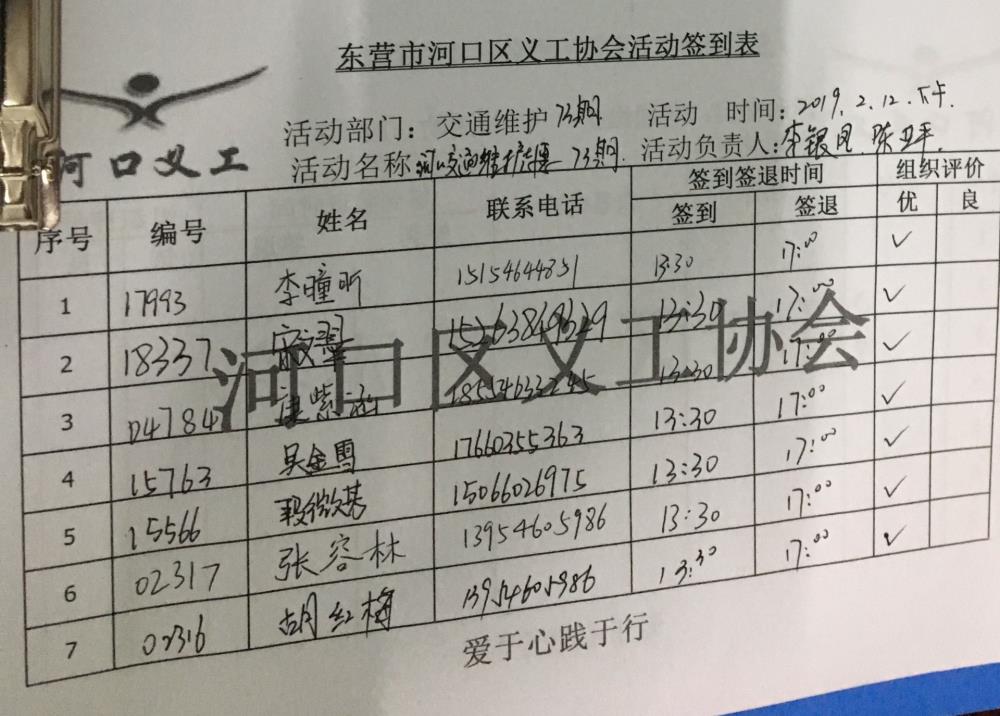 东营市河口区义工协会活动签到表
河口义工
活动部门：交通维护73期 活动 时间：2019.2.12.下午.
活动名称 河口交通维护 73期. 活动负责人：李银凤 陈卫平.
序号 编号 姓名 联系电话 签到签退时间 组织评价
签到 签退 优 良
1 17993 李曈昕 15154644851 13:30 17:00 ✓
2 18337 15263869329 13:30 17:00 ✓
3 04784 唐紫涵 13:30 17:00 ✓
4 15763 吴金雪 17660355363 13:30 17:00 ✓
5 15566 段微基 15066026975 13:30 17:00 ✓
6 02317 张容林 13954605986 13:30 17:00 ✓
7 02316 胡红梅 13954605986 13:30 17:00 ✓
河口区义工协会
爱于心践于行